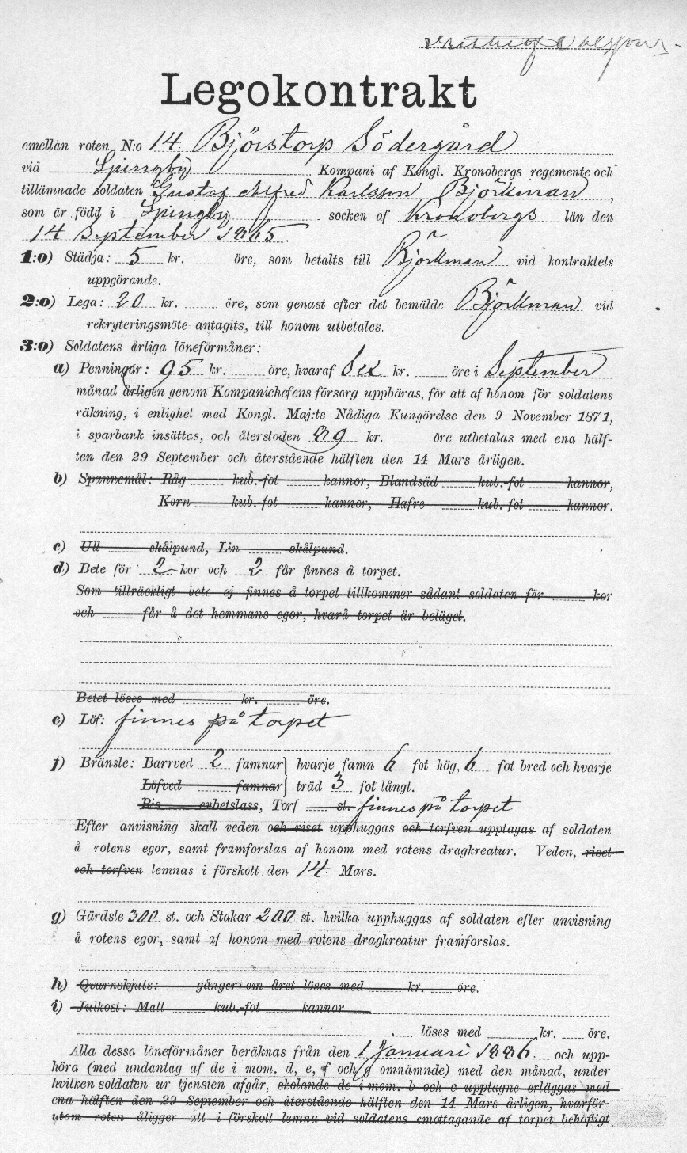 Legokontrakt
emellan roten N:o 14 Björstorp Södergård
vid Ljungby Kompani af Kongl. Kronobergs regemente och
tillämnade soldaten Gustaf Alfred Karlsson Björkman
som är född i Ljungby socken af Kronobergs län den
14 September 1865
1:o) Städja: 5 kr. öre, som betalts till Björkman vid kontraktets
uppgörande.
2:o) Lega: 20 kr. öre, som genast efter det bemälde Björkman vid
rekryteringsmöte antagits, till honom utbetales.
3:o) Soldatens årliga löneförmåner:
a) Penningar: 95 kr. öre, hvaraf Sex kr. öre i September
månad årligen genom Kompanichefens försorg uppbäras, för att af honom för soldatens
räkning, i enlighet med Kongl. Maj:ts Nådiga Kungörelse den 9 November 1871,
i sparbank insättas, och återstoden 89 kr. öre utbetalas med ena hälf-
ten den 29 September och återstående hälften den 14 Mars årligen.
b) Spannemål: Råg kub.-fot kannor, Blandsäd kub.-fot kannor,
Korn kub.-fot kannor, Hafre kub.-fot kannor.
c) Ull skålpund, Lin skålpund.
d) Bete för 2 kor och 2 får finnes å torpet.
Som tillräckligt bete ej finnes å torpet tillkommer sådant soldaten för kor
och får å det hemmans egor, hvarå torpet är beläget.
Betet löses med kr. öre.
e) Löf: finnes på torpet
f) Bränsle: Barrved 2 famnar hvarje famn 6 fot hög, 6 fot bred och hvarje
Löfved famnar träd 3 fot långt.
Ris arbetslass, Torf st. finnes på torpet
Efter anvisning skall veden och riset upphuggas och torfven upptagas af soldaten
å rotens egor, samt framforslas af honom med rotens dragkreatur. Veden, riset
och torfven lemnas i förskott den 14 Mars.
g) Gärdsle 300 st. och Stakar 200 st. hvilka upphuggas af soldaten efter anvisning
å rotens egor, samt af honom med rotens dragkreatur framforslas.
h) Qvarnskjuts: gånger om året löses med kr. öre.
i) Julkost: Malt kub.-fot kannor
löses med kr. öre.
Alla dessa löneförmåner beräknas från den 1 Januari 1886. och upp-
höra (med undantag af de i mom. d, e, f och g omnämnde) med den månad, under
hvilken soldaten ur tjensten afgår, skolande de i mom. b och c upptagne erläggas med
ena hälften den 29 September och återstående hälften den 14 Mars årligen, hvarför-
utom roten åligger att i förskott lemna vid soldatens emottagande af torpet behöfligt